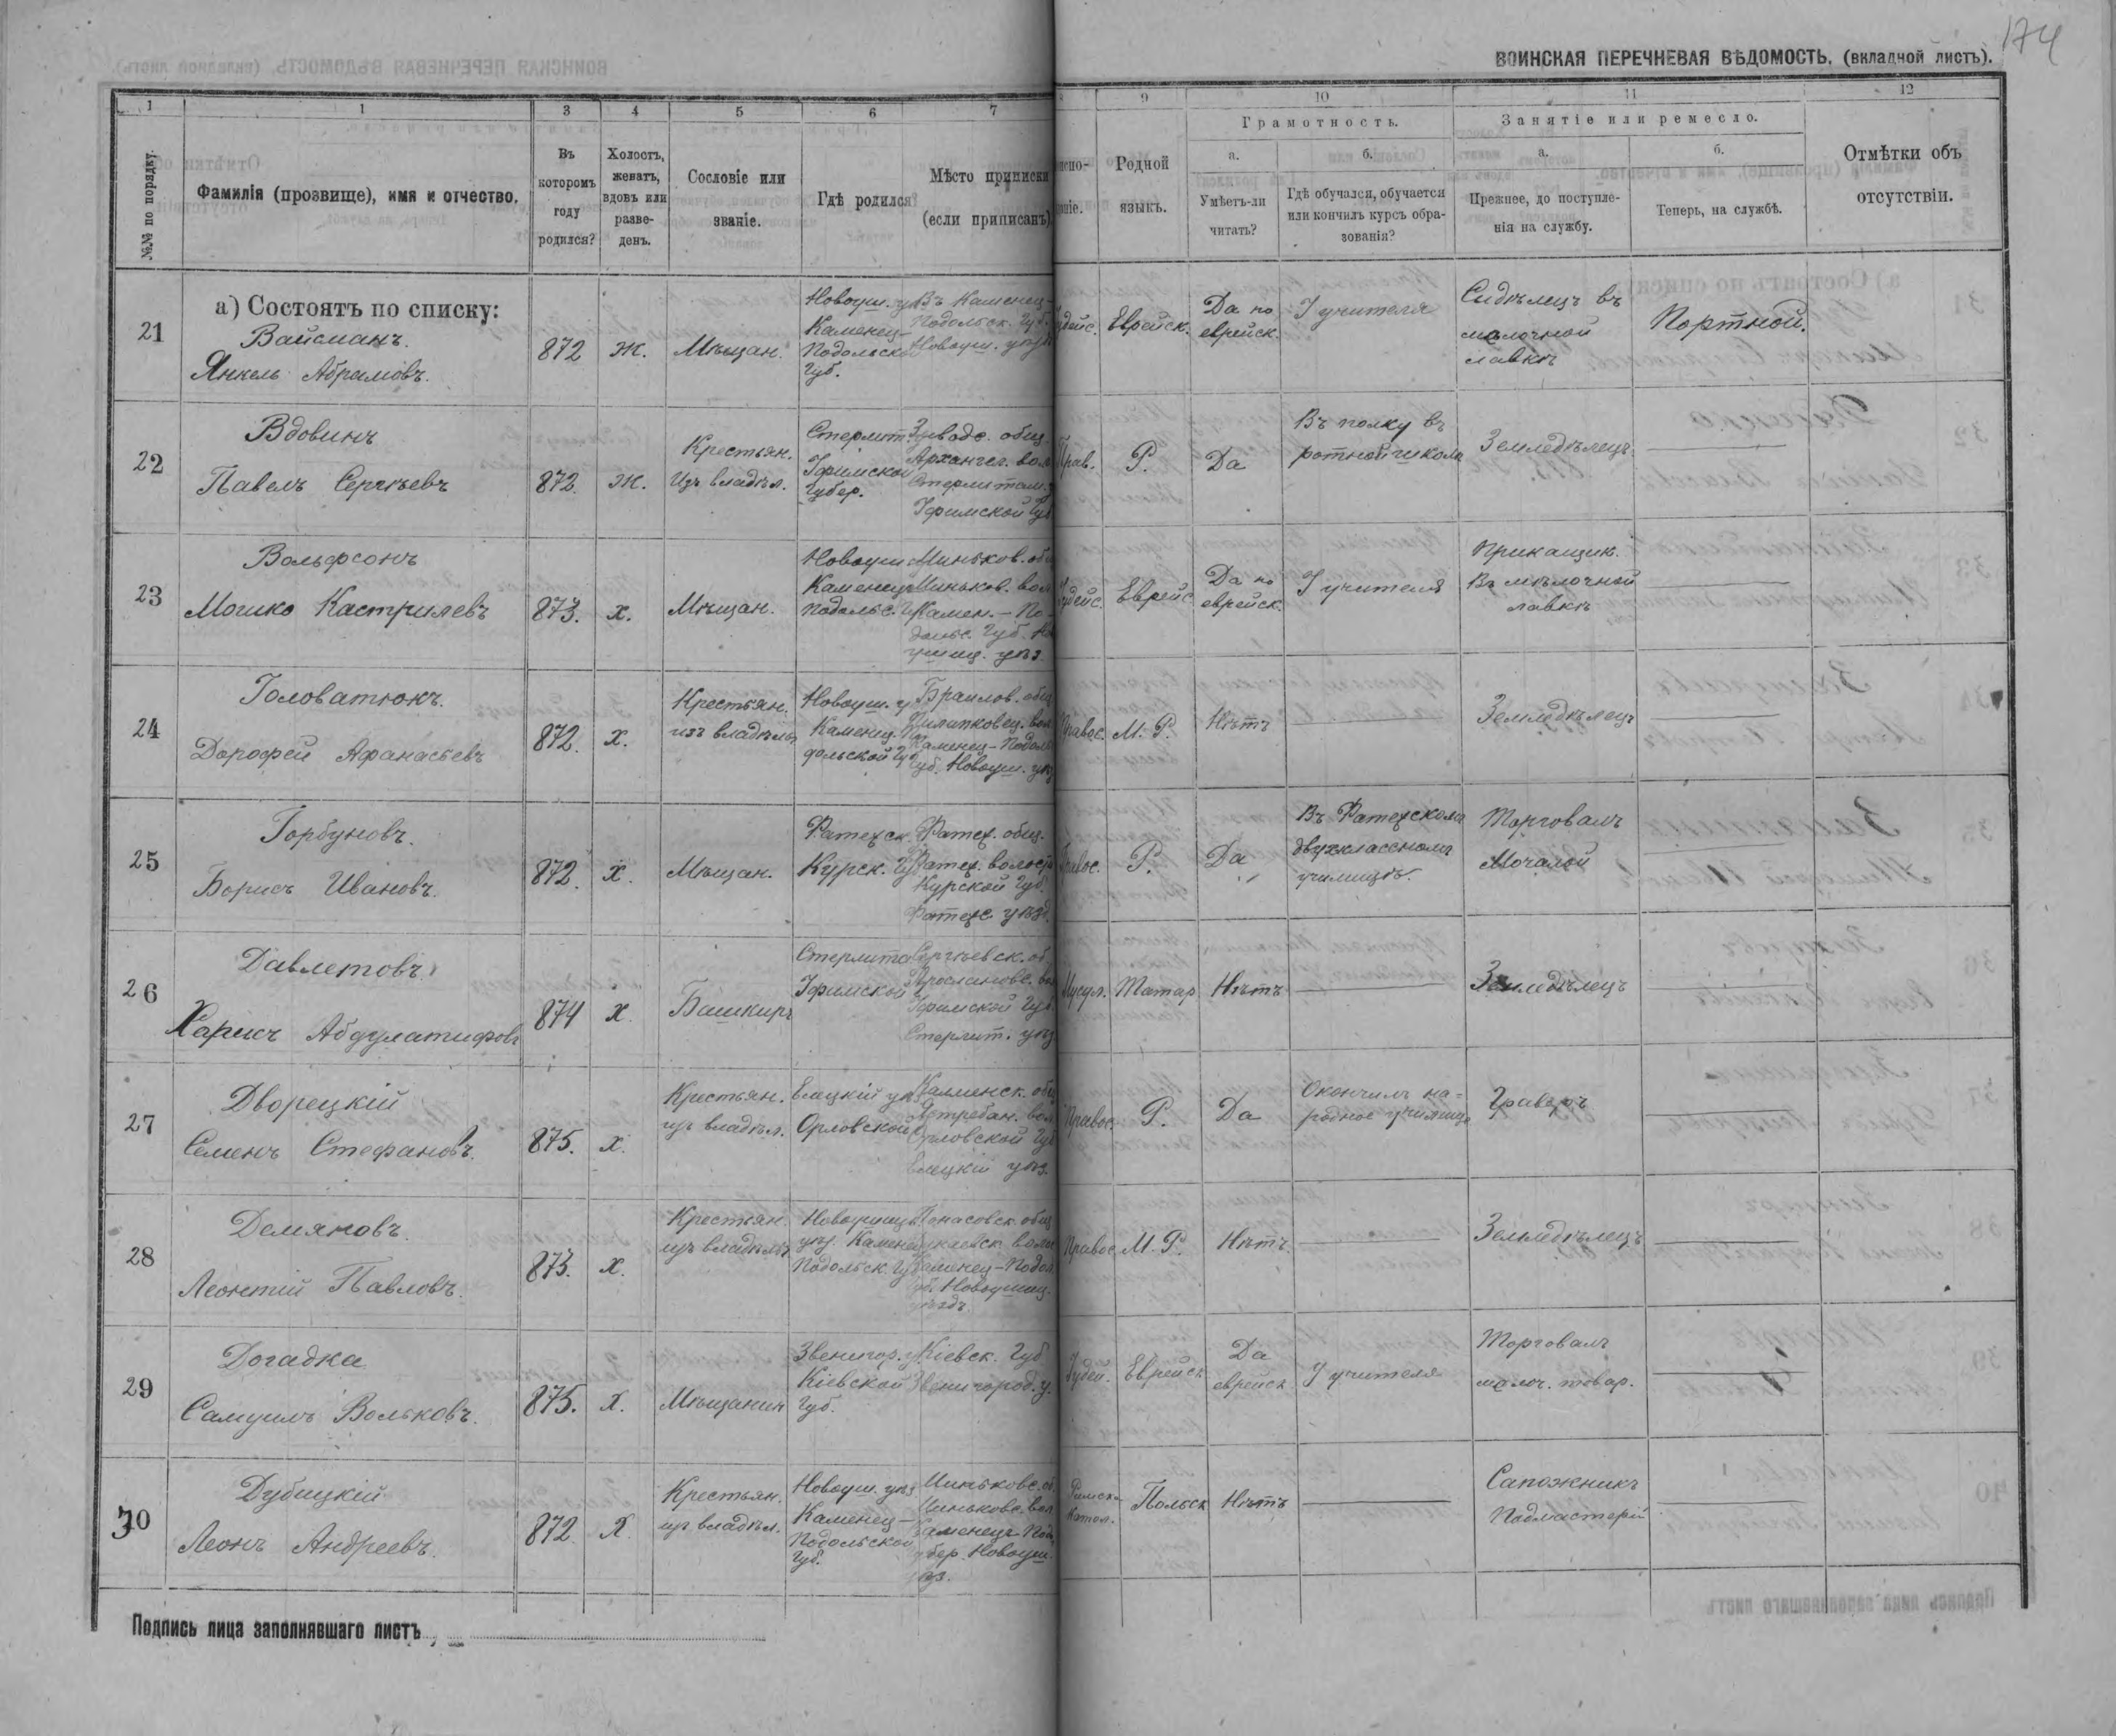 174
ВОИНСКАЯ ПЕРЕЧНЕВАЯ ВѢДОМОСТЬ, (вкладной листъ).
1 1 3 4 5 6 7 9 10 11 12
№№ по порядку.
Фамилія (прозвище), имя и отчество.
Въ которомъ году родился?
Холостъ, женатъ, вдовъ или разве-
денъ.
Сословіе или
званіе.
Гдѣ родился?
Мѣсто приписки
(если приписанъ)
Родной
языкъ.
Грамотность.
а.
Умѣетъ-ли
читать?
б.
Гдѣ обучался, обучается
или кончилъ курсъ обра-
зованія?
Занятіе или ремесло.
а.
Прежнее, до поступле-
нія на службу.
б.
Теперь, на службѣ.
Отмѣтки объ
отсутствіи.
а) Состоятъ по списку:
21
Вайсманъ.
Янкель Абрамовъ.
872
ж.
Мѣщан.
Новоуш. у.
Каменец-
Подольской
Губ.
Въ Каменец-
Подольск. Губ.
Новоуш. уѣзд
удейс.
Еврейск.
Да по
еврейск.
У учителя
Сидѣлецъ въ
мелочной
лавкѣ
Портной.
22
Вдовинъ
Павелъ Сергѣевъ
872.
ж.
Крестьян.
Изъ владѣл.
Стерлит.
Уфимской
Губер.
Заводс. общ.
Архангел. вол
Стерлитам.
Уфимской Губ
Прав.
Р.
Да
Въ полку въ
ротной школѣ
Земледѣлецъ
23
Вольфсонъ
Мошко Кастрилевъ
873.
х.
Мѣщан.
Новоуш
Каменец
Подольс. Г
Миньков. общ
Миньков. вол
Камен.-По-
дольс. Губ. Но
ушиц. уѣз.
удейс.
Еврейс
Да по
еврейск.
У учителя
Прикащик.
Въ мѣлочной
лавкѣ
24
Головатюкъ.
Дорофей Афанасьевъ
872.
х.
Крестьян.
изъ владѣль
Новоуш. у
Каменец. По
дольской Г
Браилов. общ
Пилипковец. вол
Каменец-Подоль
Губ. Новоуш. уѣз
Правос.
М. Р.
Нѣтъ
Земледѣлецъ
25
Горбуновъ.
Борисъ Ивановъ.
872.
х
Мѣщан.
Фатежск.
Курск. Губ
Фатеж. общ.
Фатеж. волость
Курской Губ.
Фатежс. уѣзд.
Правос.
Р.
Да
Въ Фатежскомъ
двухклассномъ
училищѣ.
Торговалъ
Мочалой
26
Давлетовъ
Харисъ Абдулатифовъ
874
х
Башкиръ
Стерлита
Уфимской
Сергѣевск. об.
Уфимской Губ.
Стерлит. уѣз
Мусул.
Татар
Нѣтъ
Земледѣлецъ
27
Дворецкій
Семенъ Стефановъ.
875.
х.
Крестьян.
изъ владѣл.
Елецкій уѣ
Орловской
Каменск. общ
Ястребан. вол
Орловской Губ
Елецкій уѣз.
Правос.
Р.
Да
Окончилъ на-
родное училище
Граверъ
28
Демяновъ.
Леонтій Павловъ.
873.
х.
Крестьян.
изъ владѣль
Новоушиц
уѣз. Камене
Подольск. Гу
Каменец-Подол
Губ. Новоушиц.
уѣздъ.
Правос
М. Р.
Нѣтъ
Земледѣлецъ
29
Догадка
Самуилъ Вольковъ.
875.
х.
Мѣщанин
Звенигор. у
Кіевской
Губ.
Кіевск. Губ
Звенигород. у.
Іудей.
Еврейск
Да
еврейск
У учителя
Торговалъ
мелоч. товар.
30
Дубицкій
Леонъ Андреевъ.
872.
х.
Крестьян.
изъ владѣл.
Новоуш. уѣз
Каменец-
Подольской
Губ.
Миньковс. об.
Миньковс. вол
Каменец-Под
Губер. Новоуш.
уѣз.
Римско-
Катол.
Польск
Нѣтъ
Сапожникъ
Подмастерій
Подпись лица заполнявшаго листъ